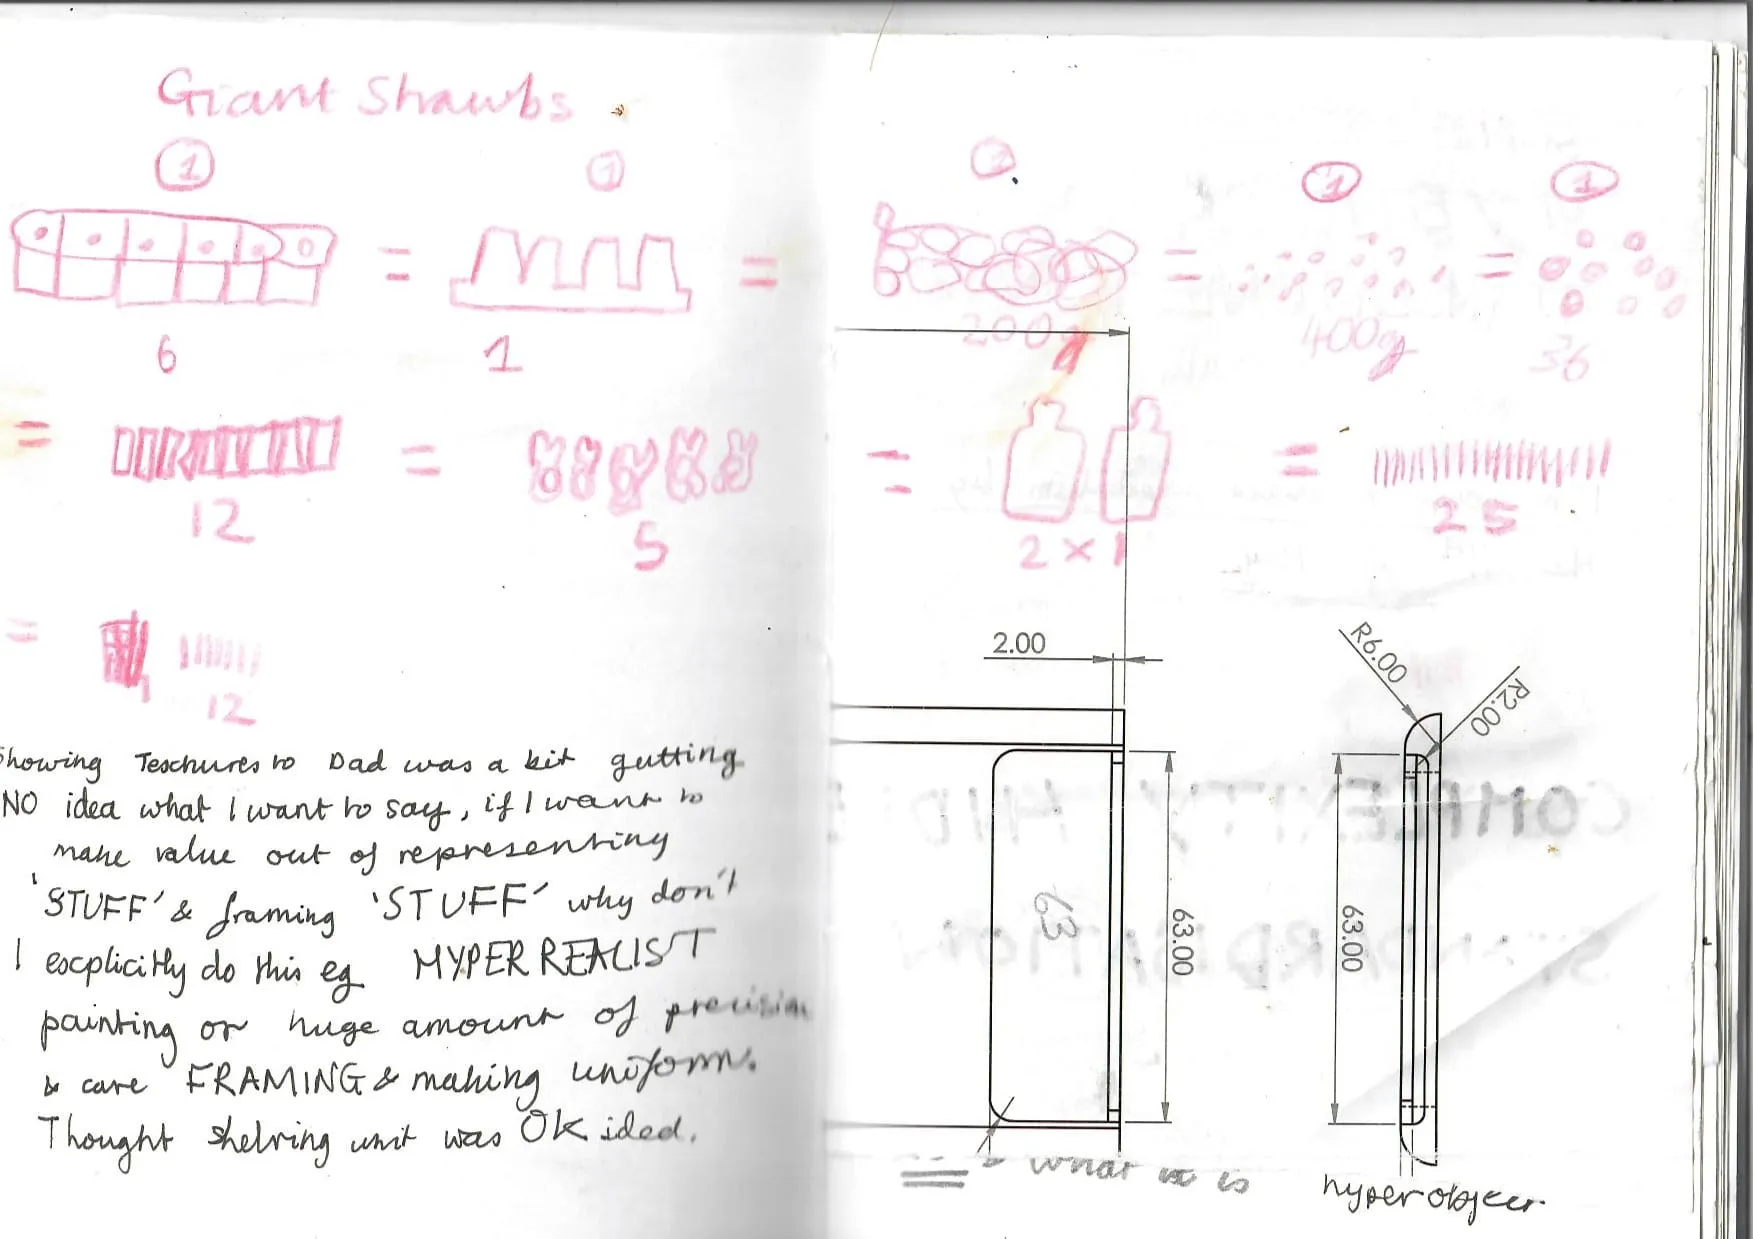 Giant Strawbs
1 1 1 1 1
= = = =
6 1 200g 400g 36
= = = =
12 5 2 x 1 25
=
1 12
showing Teschures to Dad was a bit gutting
NO idea what I want to say, if I want to
make value out of representing
'STUFF' & framing 'STUFF' why don't
I escplicitly do this eg HYPERREALIST
painting or huge amount of precision
& care FRAMING & making uniform.
Thought shelving unit was OK idea.
2.00
R6.00
R2.00
63
63.00
63.00
what is
hyperobject
COMPLEXITY HID
STANDARDISATION